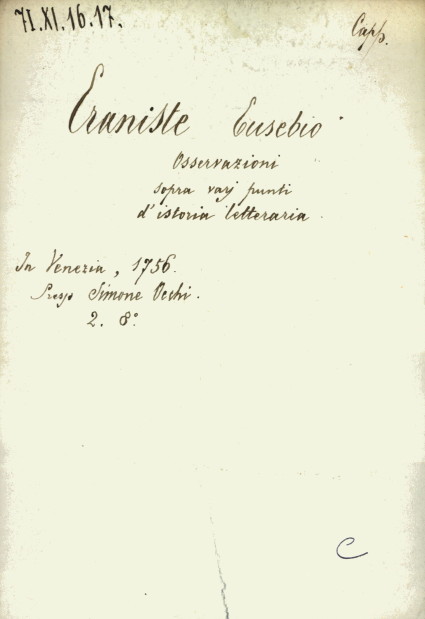 71.XI.16.17.
Capp.
Eraniste Eusebio
Osservazioni
sopra varj punti
d'istoria letteraria.
In Venezia, 1756.
Simone Occhi.
2. 8°.
C